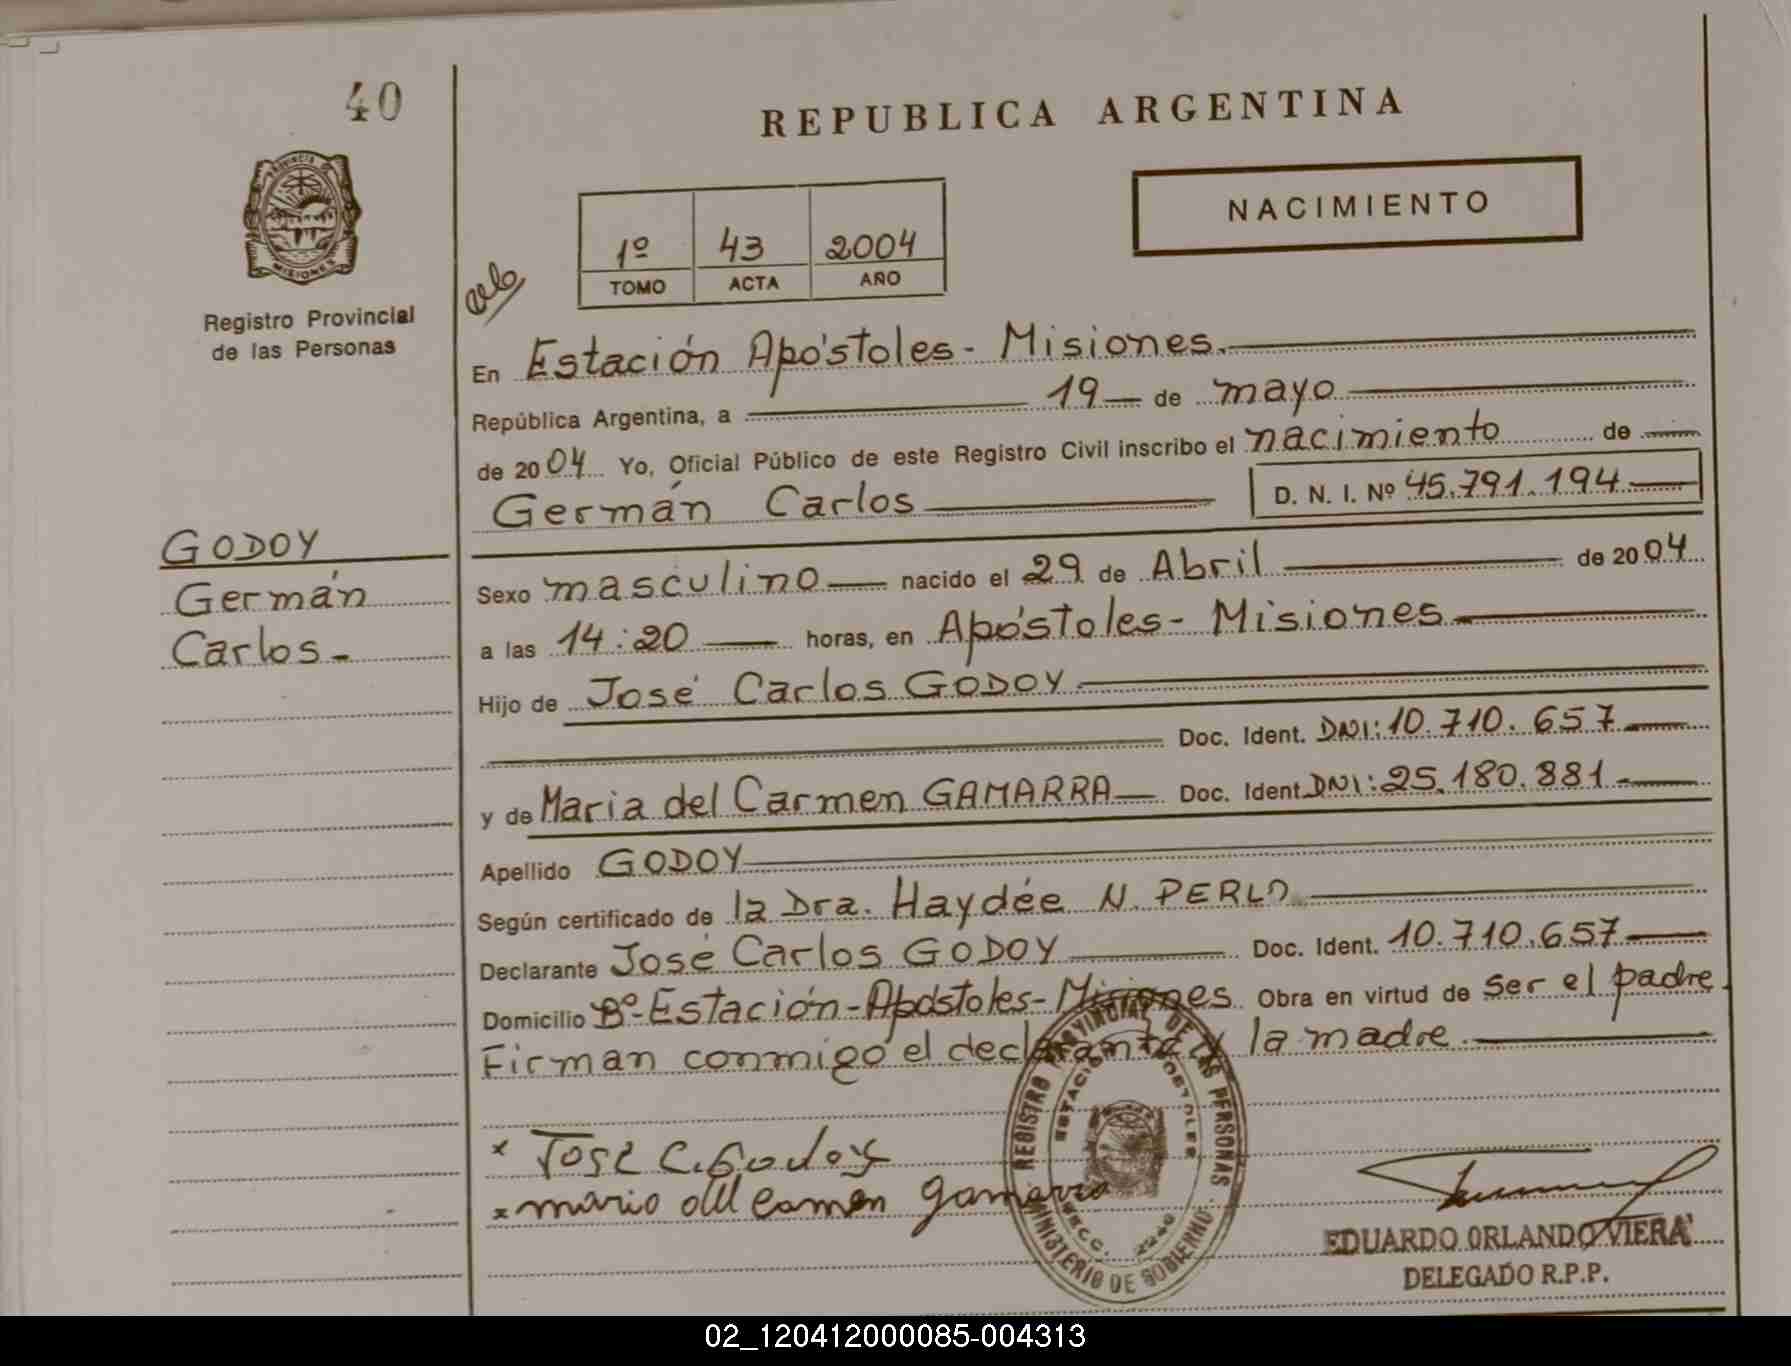 40
REPUBLICA ARGENTINA
NACIMIENTO
1º 43 2004
TOMO ACTA AÑO
PROVINCIA DE MISIONES
Registro Provincial
de las Personas
En Estación Apóstoles - Misiones.
República Argentina, a 19 de mayo
de 2004 Yo, Oficial Público de este Registro Civil inscribo el nacimiento de
Germán Carlos D. N. I. Nº 45.791.194
GODOY
Germán
Carlos -
Sexo masculino nacido el 29 de Abril de 2004
a las 14:20 horas, en Apóstoles - Misiones
Hijo de José Carlos GODOY
Doc. Ident. DNI: 10.710.657
y de Maria del Carmen GAMARRA Doc. Ident. DNI: 25.180.881
Apellido GODOY
Según certificado de la Dra. Haydée N. PERLO
Declarante José Carlos GODOY Doc. Ident. 10.710.657
Domicilio Bº- Estación - Apóstoles - Misiones Obra en virtud de ser el padre.
Firman conmigo el declarante y la madre
REGISTRO PROVINCIAL DE LAS PERSONAS
MINISTERIO DE GOBIERNO
x José C. Godoy
x maria del Carmen gamarra
EDUARDO ORLANDO VIERA
DELEGADO R.P.P.
02_120412000085-004313